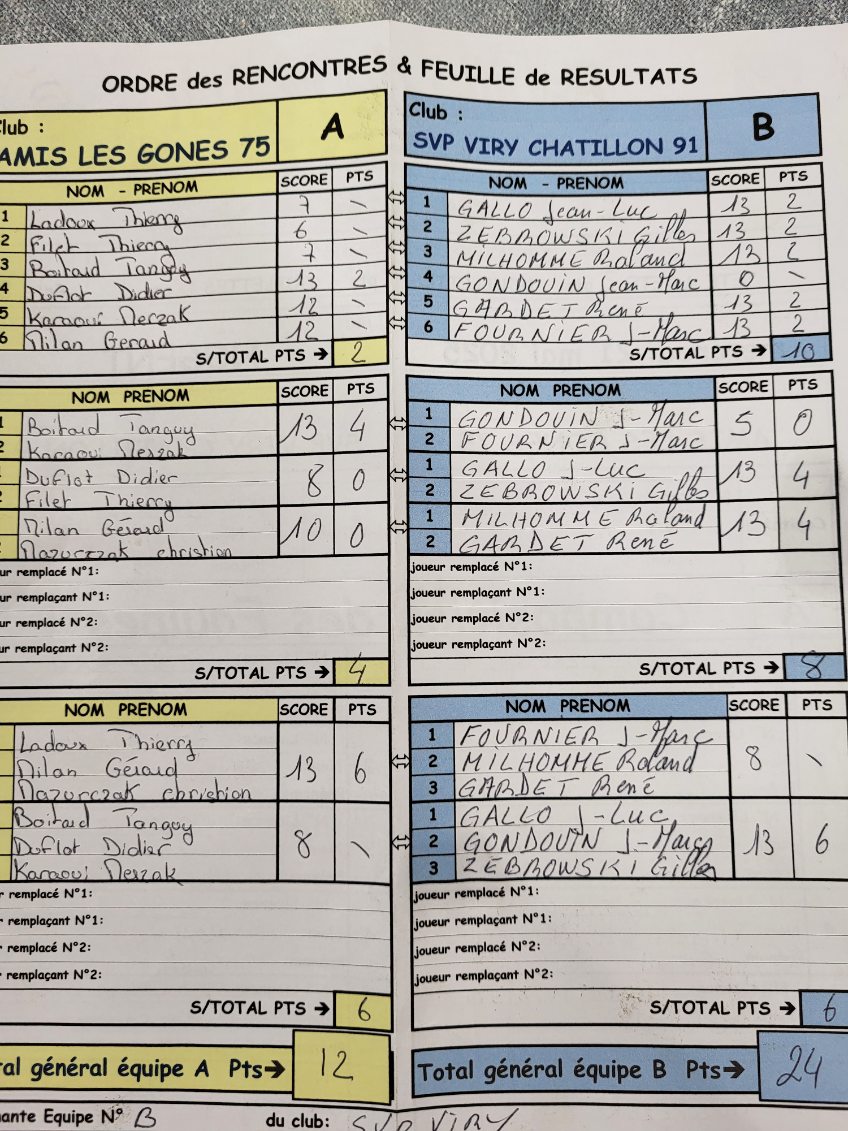 ORDRE des RENCONTRES & FEUILLE de RESULTATS
Club : A
AMIS LES GONES 75
NOM - PRENOM SCORE PTS
1 Ladoux Thierry 7 \
2 Filet Thierry 6 \
3 Boitard Tanguy 7 \
4 Duflot Didier 13 2
5 Karaoui Merzak 12 \
6 Milan Gerard 12 \
S/TOTAL PTS → 2
NOM PRENOM SCORE PTS
1 Boitard Tanguy 13 4
2 Karaoui Merzak
1 Duflot Didier 8 0
2 Filet Thierry
1 Milan Gérard 10 0
Mazurczak christian
ur remplacé N°1:
ur remplaçant N°1:
ur remplacé N°2:
ur remplaçant N°2:
S/TOTAL PTS → 4
NOM PRENOM SCORE PTS
Ladoux Thierry
Milan Gérard 13 6
Mazurczak christian
Boitard Tanguy
Duflot Didier 8 \
Karaoui Merzak
r remplacé N°1:
r remplaçant N°1:
r remplacé N°2:
r remplaçant N°2:
S/TOTAL PTS → 6
al général équipe A Pts→ 12
Club : B
SVP VIRY CHATILLON 91
NOM - PRENOM SCORE PTS
1 GALLO Jean-Luc 13 2
2 ZEBROWSKI Gilles 13 2
3 MILHOMME Roland 13 2
4 GONDOUIN Jean-Marc 0 \
5 GARDET René 13 2
6 FOURNIER J-Marc 13 2
S/TOTAL PTS → 10
NOM PRENOM SCORE PTS
1 GONDOUIN J-Marc 5 0
2 FOURNIER J-Marc
1 GALLO J-Luc 13 4
2 ZEBROWSKI Gilles
1 MILHOMME Roland 13 4
2 GARDET René
joueur remplacé N°1:
joueur remplaçant N°1:
joueur remplacé N°2:
joueur remplaçant N°2:
S/TOTAL PTS → 8
NOM PRENOM SCORE PTS
1 FOURNIER J-Marc
2 MILHOMME Roland 8 \
3 GARDET René
1 GALLO J-Luc
2 GONDOUIN J-Marc 13 6
3 ZEBROWSKI Gilles
joueur remplacé N°1:
joueur remplaçant N°1:
joueur remplacé N°2:
joueur remplaçant N°2:
S/TOTAL PTS → 6
Total général équipe B Pts→ 24
nante Equipe N° B du club: SVP VIRY